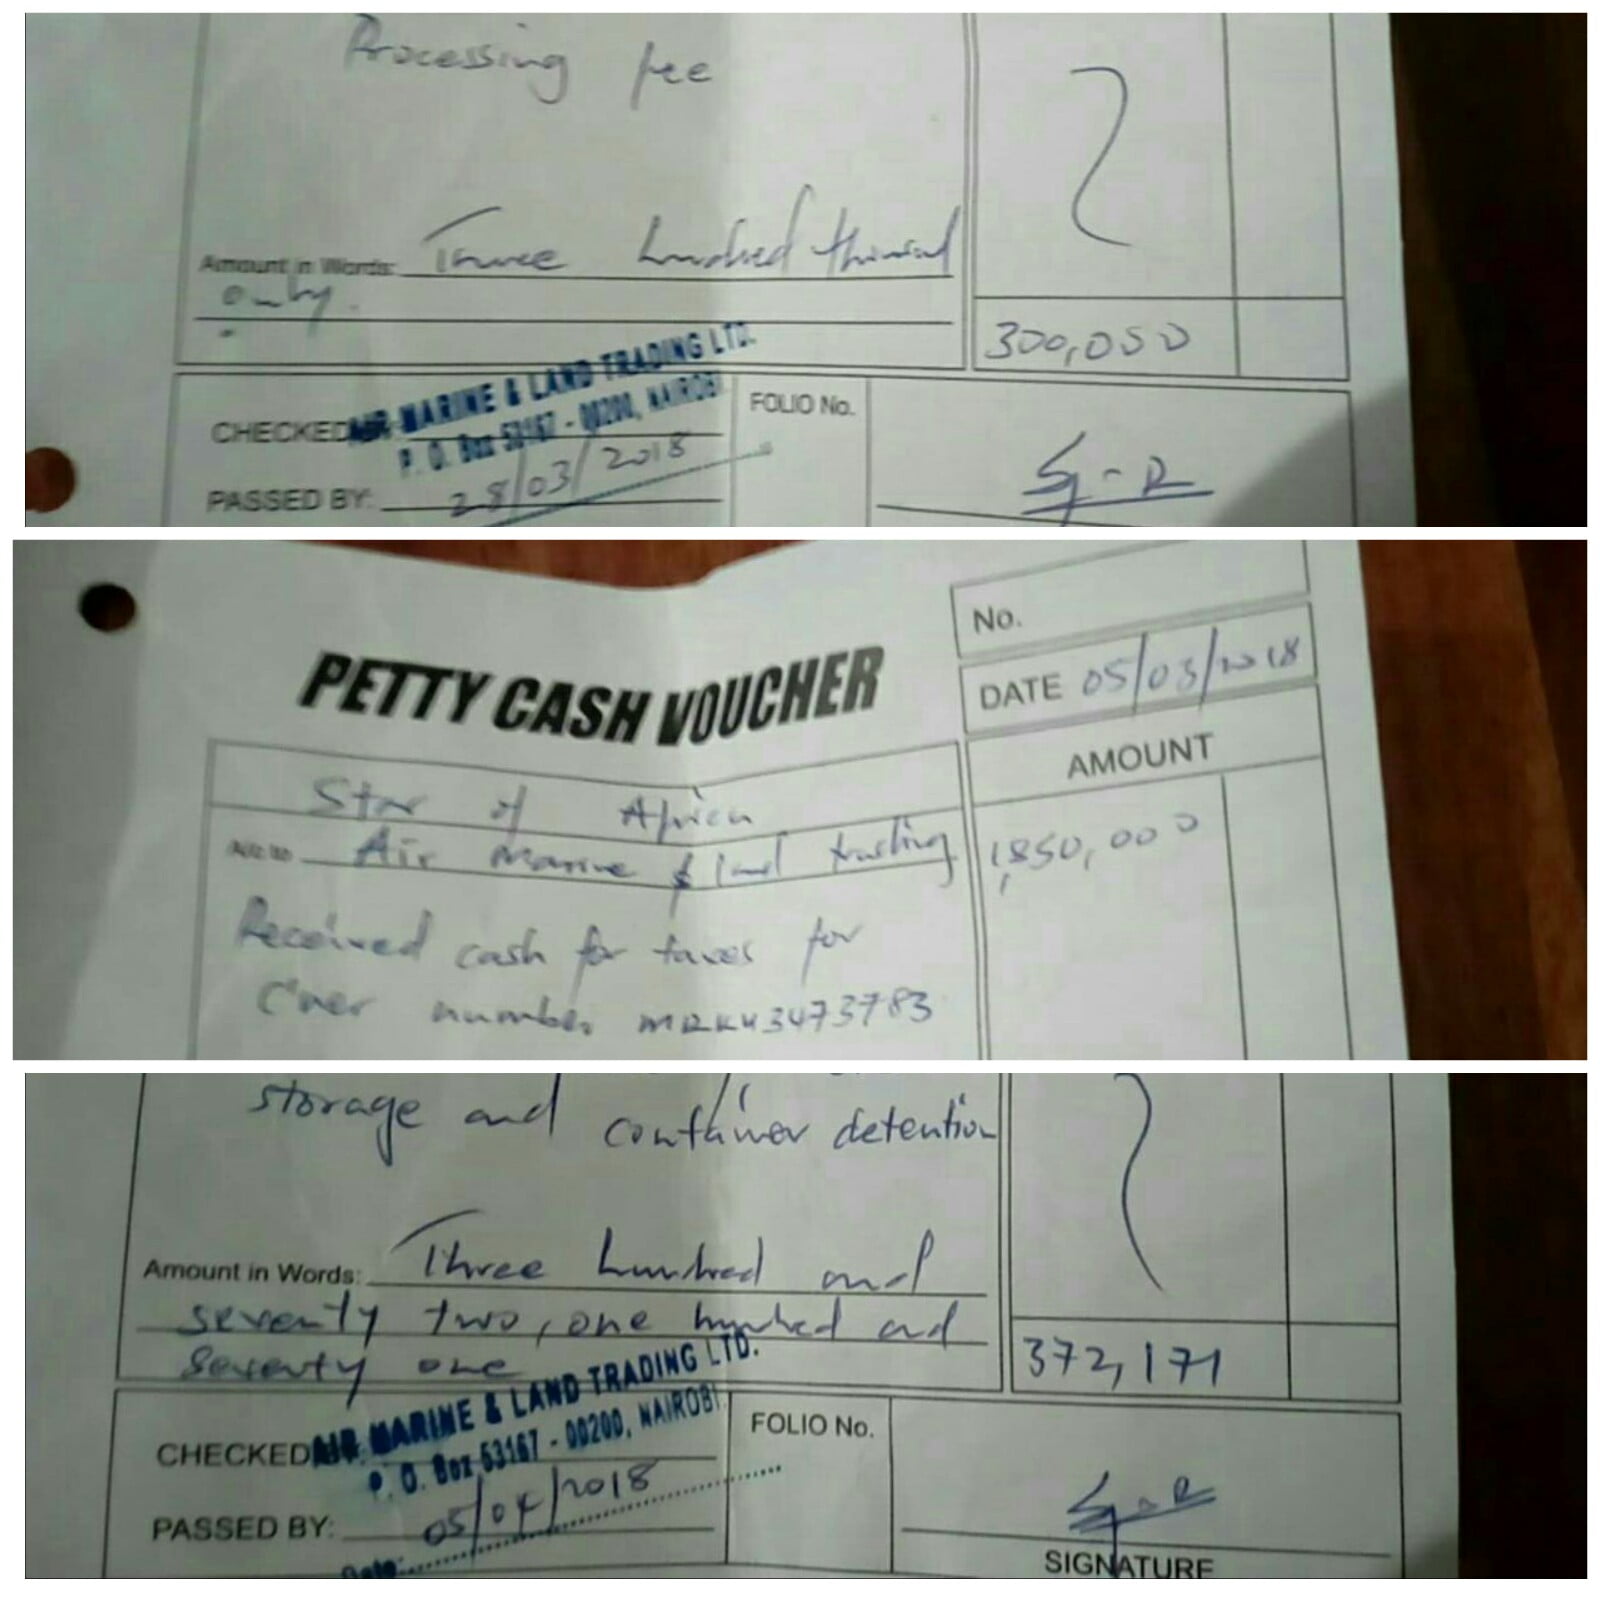 Processing fee
Amount in Words: Three hundred thousand
only.
300,000
AIR MARINE & LAND TRADING LTD.
P. O. Box 53167 - 00200, NAIROBI
CHECKED
FOLIO No.
PASSED BY: 28/03/2018
No.
PETTY CASH VOUCHER
DATE 05/03/2018
AMOUNT
Star of Africa
Air Marine & land trading 1,850,000
Received cash for taxes for
C'ner number MRKU3473783
storage and container detention
Amount in Words: Three hundred and
seventy two, one hundred and
seventy one
372,171
AIR MARINE & LAND TRADING LTD.
P. O. Box 53167 - 00200, NAIROBI
CHECKED
FOLIO No.
PASSED BY: 05/04/2018
Date:
SIGNATURE